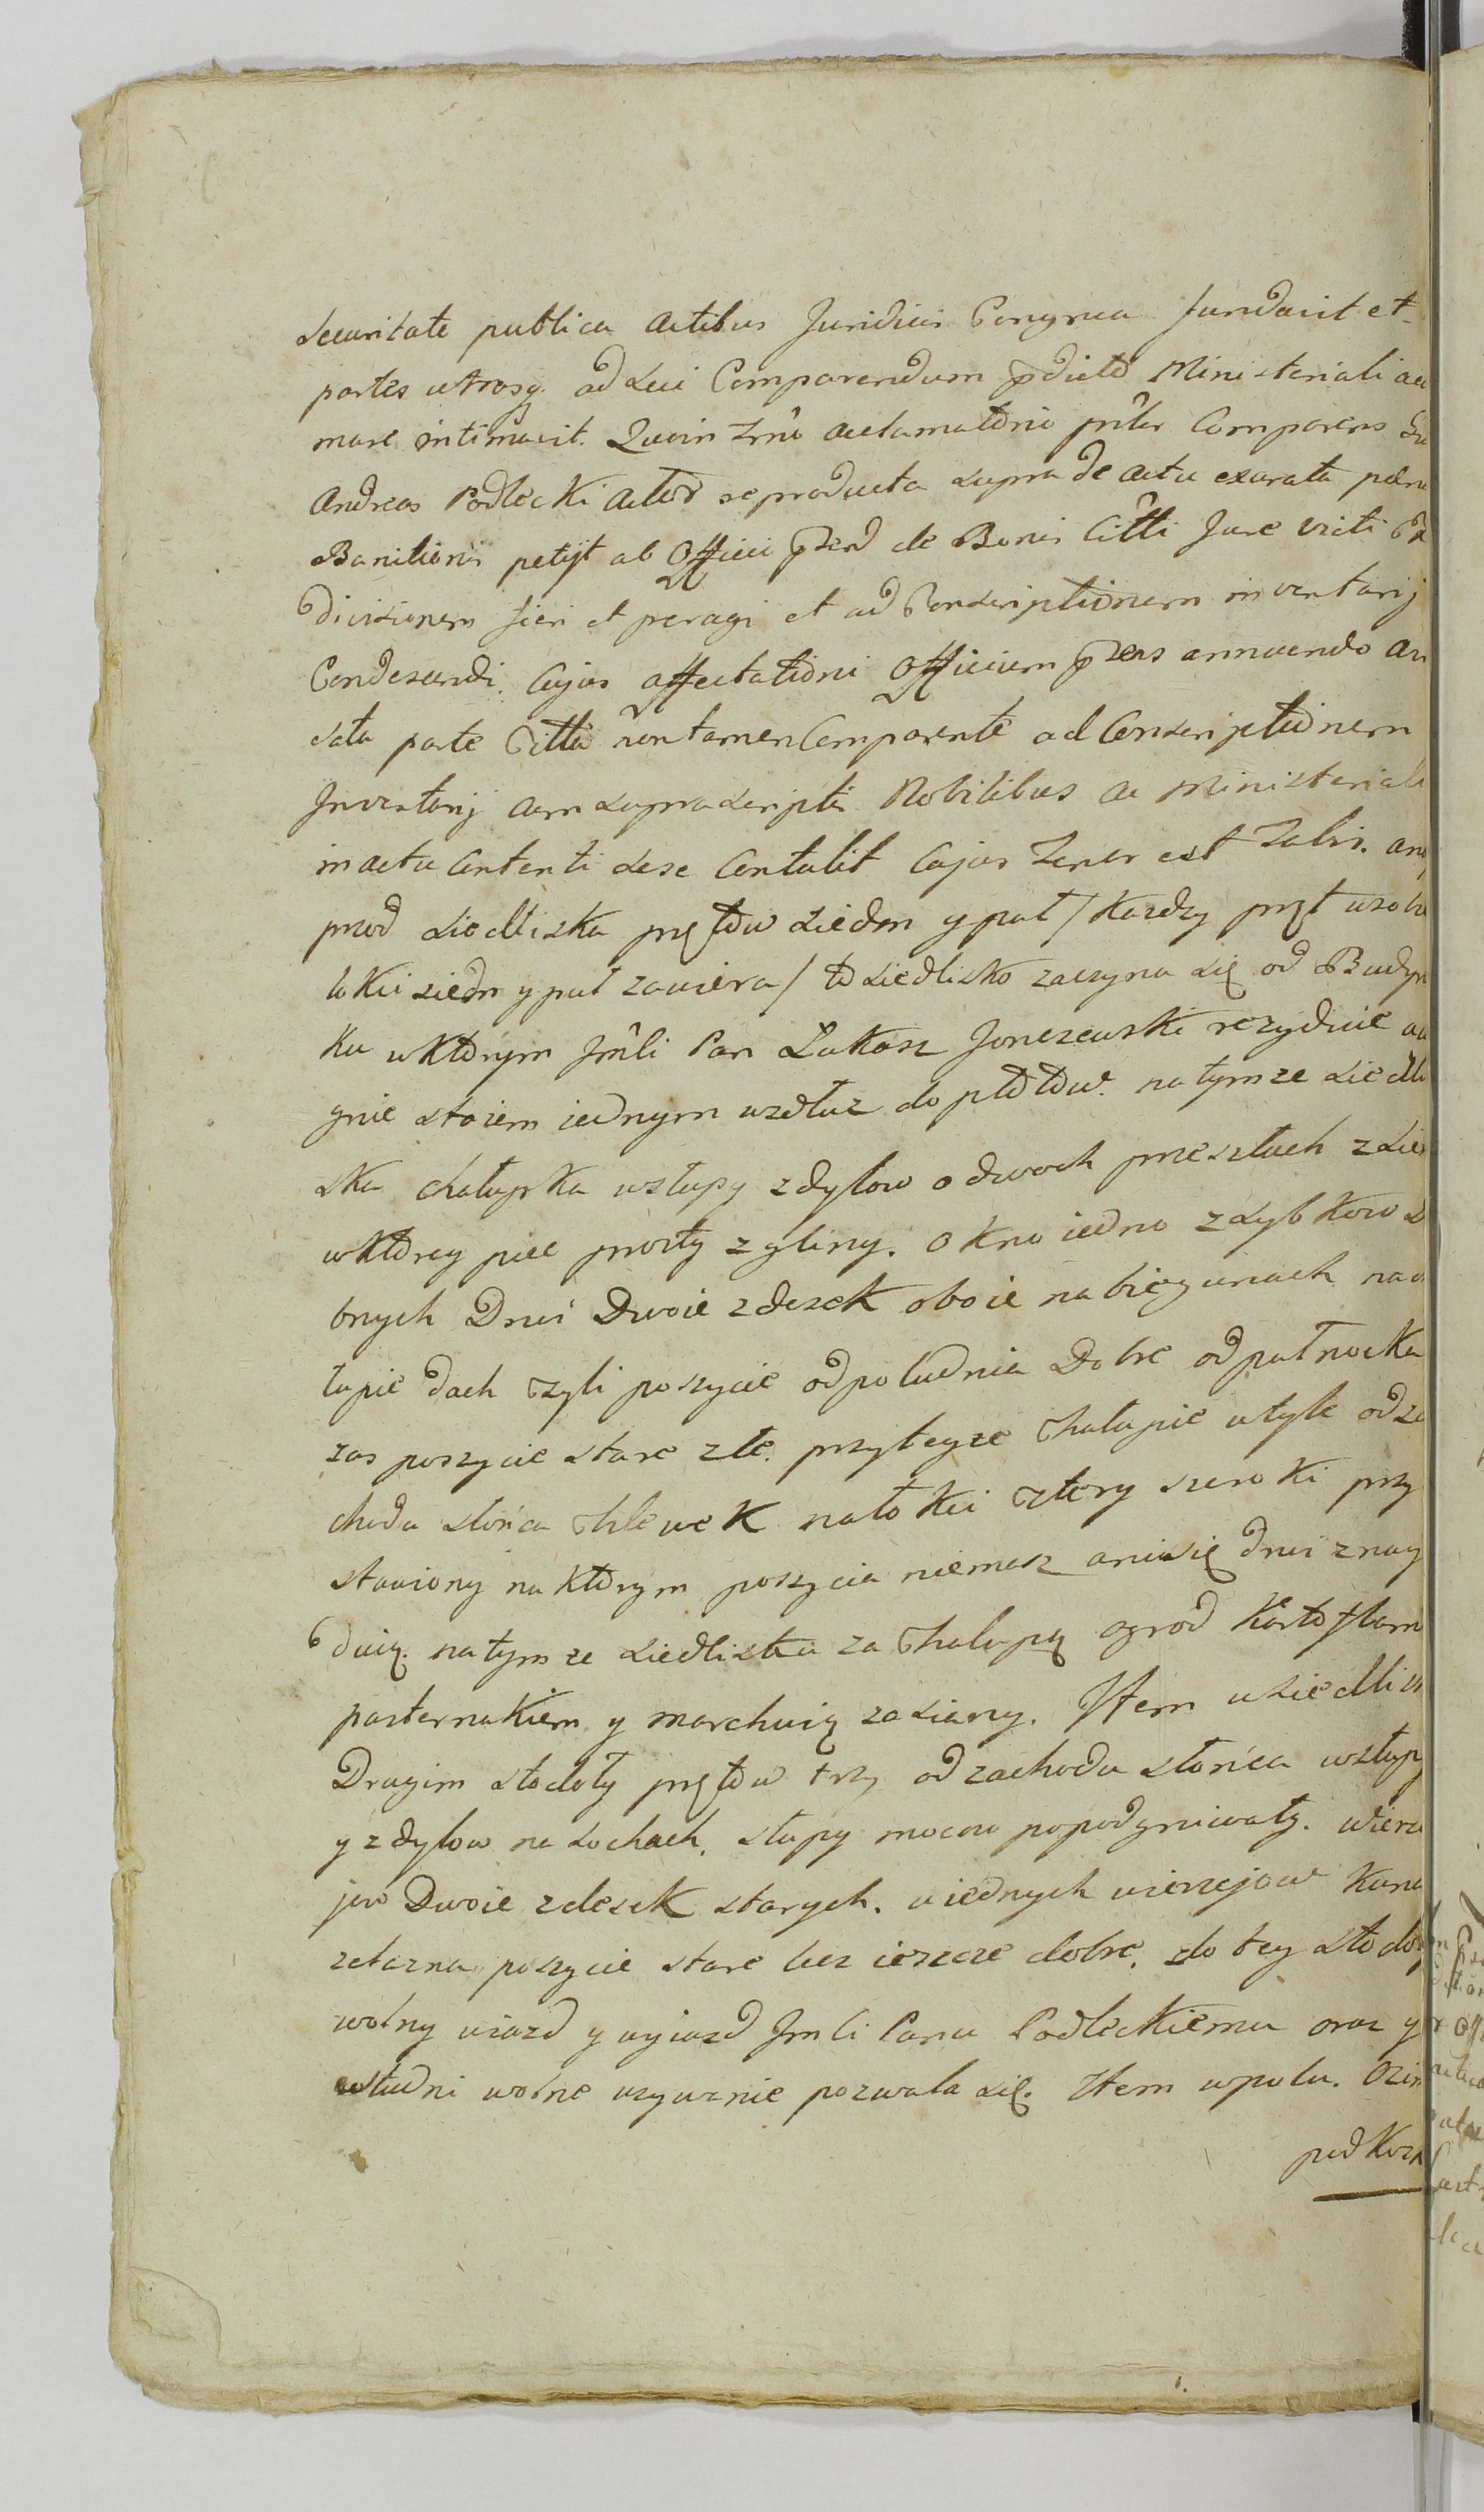 securitate publica actibus Juridicis Congrua fundavit et
partes utrasq. ad sui Comparendum pdicto Ministeriali acla
mare intimavit. Quoin trmo acclamatorio pnlr Comparens
Andreas Podlecki actor reproducta supra de actu exarata pœna
Banitionis petijt ab Officii pzen de Bonis Citti Jure victi
divisionem fieri et peragi et ad Conscriptionem inventarij
Condescendi. Cujus affectationi Officium pzens annuendo
sata parte Citta non tamen Comparente ad Conscriptionem
Inventarij cum suprascriptis Nobilibus ac Ministeriali
in actu Contenti sese Contulit Cujus Tenor est Talis.
przod siedliska prętow siedm y puł / kazdy pręt w sobie
łokci siedm y puł zawiera / to siedlisko zaczyna się od Budyn
ku w ktorym Jmci Pan Łukasz Jonczewski rezyduie
gnie staiem iednym wzdłuz do płotow. na tymze siedli
sku chałupka w słupy z dylow o dwoch przesłach z sie
w ktorey piec prosty z gliny. okno iedno z szybkow
bnych Drzwi Dwoie z desek oboie na biegunach na
łupie dach czyli poszycie od poludnia Dobre od pułnocka
zas poszycie stare złe. przy teyze Chałupie w tyle od za
chodu słońca Chlewek na łokci cztery szeroki przy
stawiony na ktorym poszycia niemasz ani się drzwi znay
duią. na tymze siedlisku za Chałupą ogrod kartoflam
pasternakiem y marchwią zasiany. Item w siedlis
Drugim stodoły prętow trzy od zachodu słońca w słupy
y z dylow na sochach. słupy mocno popodgniwały. wierze
jow Dwoie z desek starych. u iednych wierzejow kuna
zelazna poszycie stare lecz ieszcze dobre. do tey stodoły
wolny wiazd y wyiazd Jmci Panu Podleckiemu oraz y
studni wolne uzywanie pozwala się. Item w polu.
pod